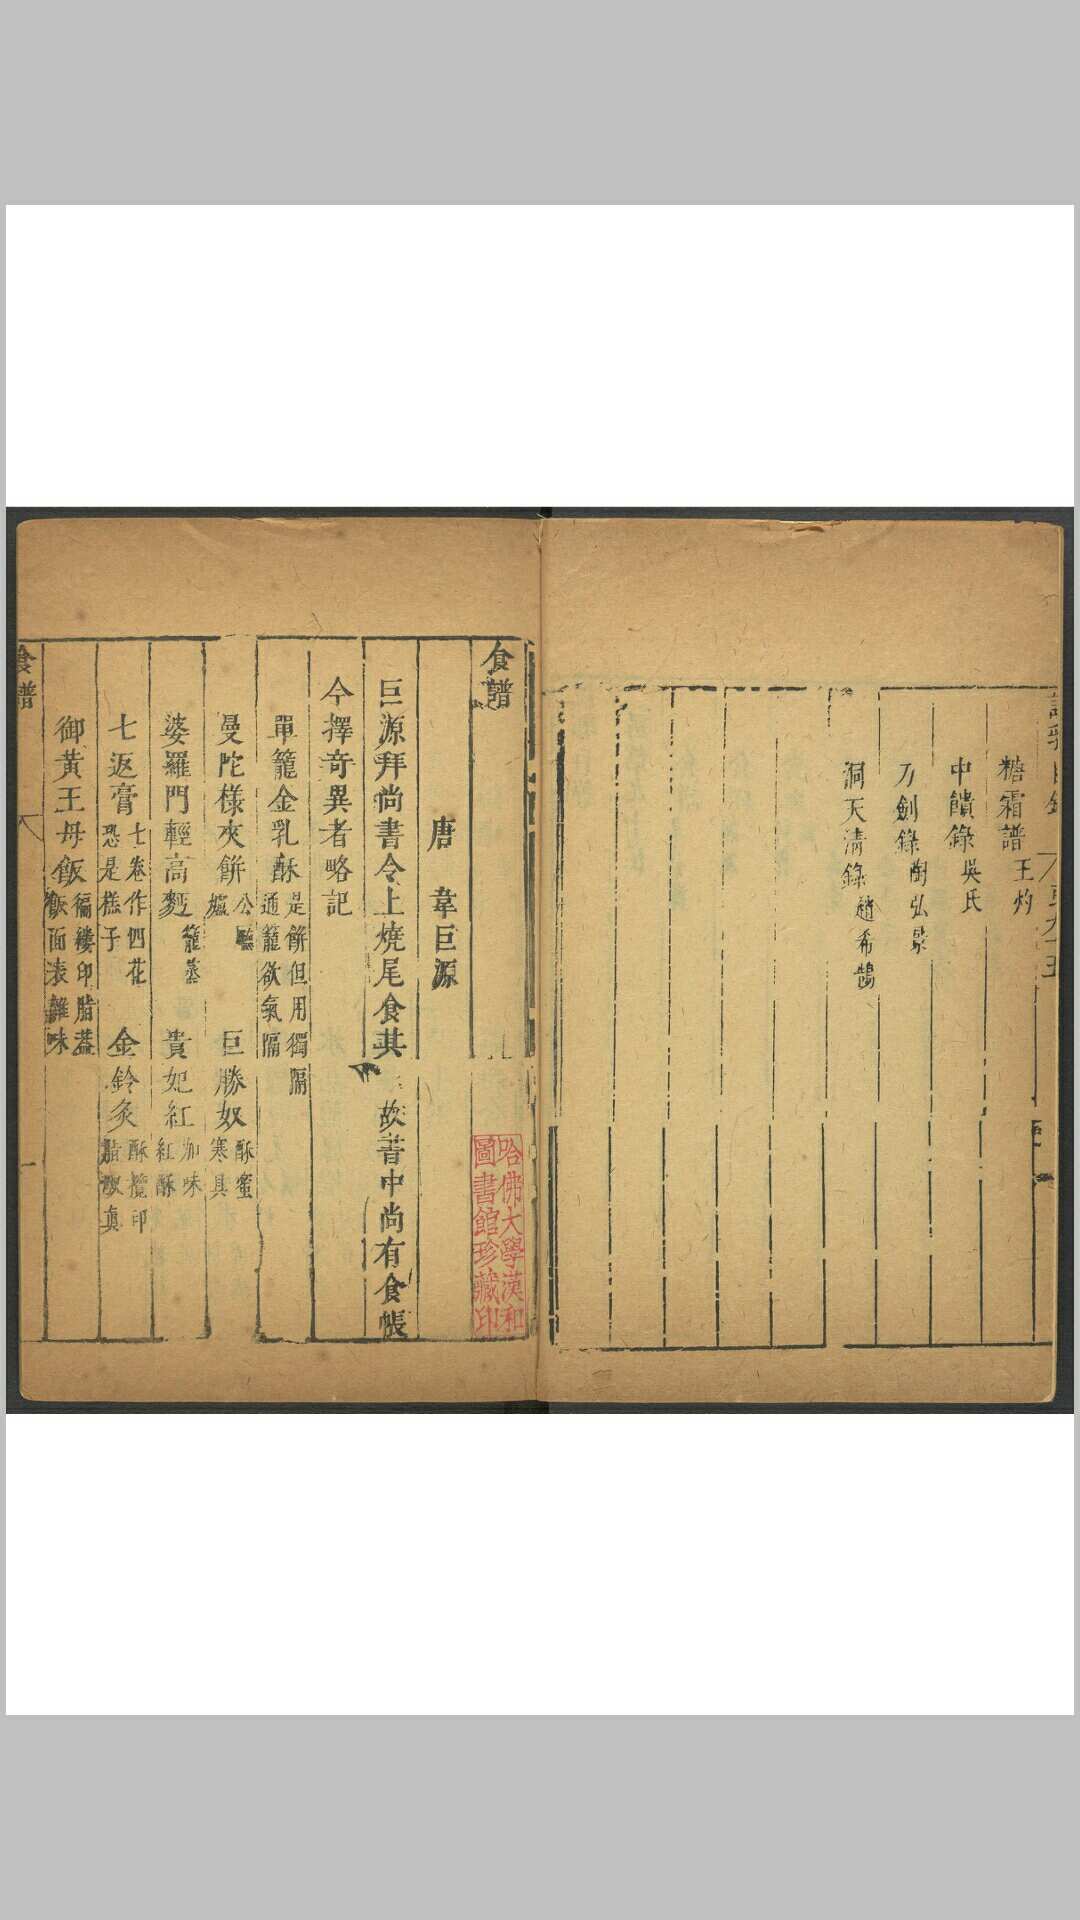 糖霜譜王灼
中饋錄吳氏
刀劍錄陶弘景
洞天清錄趙希鵠
食譜
唐　韋巨源
巨源拜尚書令上燒尾食其　故書中尚有食帳
今擇奇異者略記
單籠金乳酥是餅但用獨隔通籠欲氣隔
曼陀樣夾餅公廳爐　巨勝奴酥蜜寒具
婆羅門輕高麪籠蒸　貴妃紅加味紅酥
七返膏七卷作四花恐是糕子　金鈴炙酥攪印脂取真
御黃王母飯徧縷印脂蓋飯面表雜味
食譜
哈佛大學漢和圖書館珍藏印